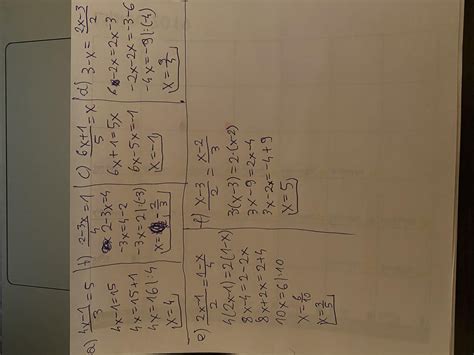 a) 4x-1/3 = 5
4x-1=15
4x=15+1
4x=16 |:4
x=4
b) 2-3x/4 = 1
2-3x=4
-3x=4-2
-3x=2 |:(-3)
x= -2/3
c) 6x+1/5 = x
6x+1=5x
6x-5x=-1
x=-1
d) 3-x = 2x-3/2
6-2x=2x-3
-2x-2x=-3-6
-4x=-9 |:(-4)
x=9/4
e) 2x-1/2 = 1-x/4
4(2x-1)=2(1-x)
8x-4=2-2x
8x+2x=2+4
10x=6 |:10
x=6/10
x=3/5
f) x-3/2 = x-2/3
3(x-3)=2·(x-2)
3x-9=2x-4
3x-2x=-4+9
x=5